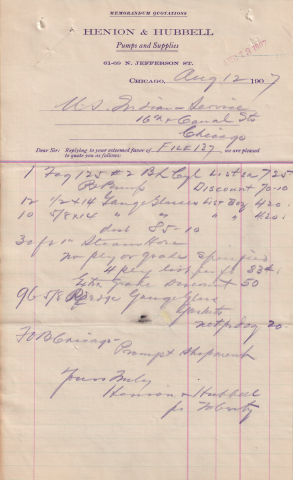 MEMORANDUM QUOTATIONS
HENION & HUBBELL
Pumps and Supplies
61-69 N. JEFFERSON ST.
CHICAGO, Aug 12 1907
U.S. Indian Service
16th & Canal Sts
Chicago
Dear Sir: Replying to your esteemed favor of File 137 we are pleased
to quote you as follows:
1 Fig 125 #2 Bh Cyl List ea 7 25
Pump Discount 70-10
12 1/2 x 14 Gauge Glasses List Doz 4 20
10 5/8 x 14 " " " " 4 20
dis 85-10
30 ft 1" Steam Hose
no ply or grade specified
4 ply list per ft 83
grade discount 50
96 5/8 Gauge Glass
Gaskets
net doz 20
FOB Chicago
Prompt Shipment
Yours truly
Henion & Hubbell